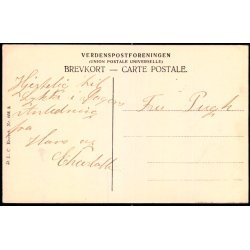 VERDENSPOSTFORENINGEN
(UNION POSTALE UNIVERSELLE)
BREVKORT — CARTE POSTALE.
Hjertelig til
Lykke i Dagens
Anledning
fra
Hans og
Charlotte
Fru Pugh